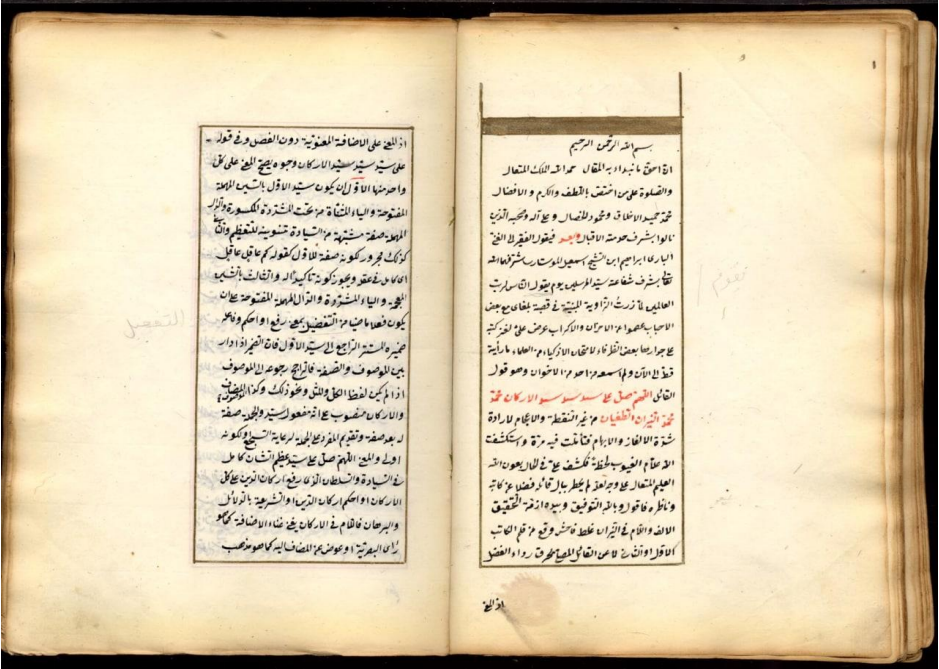 بسم الله الرحمن الرحيم
ان احق ما نبدا به المقال حمد الله الملك المتعال
والصلوة على من اختص باللطف والكرم والافضال
محمد حميد الاخلاق ومحمود الخصال وعلى آله وصحبه الذين
نالوا بشرف خدمته الاقبال وبعد فيقول الفقير الى الغنى
البارى ابراهيم ابن الشيخ اسمعيل شرفهما الله
تعالى بشرف شفاعة سيد المرسلين يوم يقوم الناس لرب
العالمين لما زرت الزاوية المبنية في قصبة مع بعض
الاحباب عرض على
بعض الظرفاء لامتحان الاذكياء من العلماء ما رأيته
قط الى الآن ولم اسمعه من احد من الاخوان وهو قول
القائل اللهم صل على سيد سيد سيد الاركان محمد
النيران الطغيان من غير النقطة والاعجام لارادة
شدة الالغاز والابهام فتأملت فيه مرة واستكشفت
الا علام الغيوب لحظة فكشف على في الحال بعون الله
العليم المتعال على وجه لم يخطر ببال قائله فضلا عن كاتبه
وناظره فاقول وبالله التوفيق وبيده ازمة التحقيق
الالف واللام في النيران غلط فاحش وقع من قلم الكاتب
الاول او الثانى لا عن القائل رداء الفضل
اذ المعنى
اذ المعنى على الاضافة المعنوية دون الفصل وفي قوله
على سيد سيد سيد الاركان وجوه يصح المعنى على كل
واحد منها الاول ان يكون سيد الاول بالسين المهملة
المفتوحة والياء المثناة من تحت المشددة المكسورة والدال
المهملة صفة مشبهة من السيادة تنوينه للتعظيم والثانى
كذلك مجرور لكونه صفة للاول كقوله كم عاقل عاقل
اى كامل في عقله ويجوز كونه تأكيدا له والثالث بالشين
المعجمة والياء المشددة والدال المهملة المفتوحة على ان
يكون فعلا ماضيا من التفعيل بمعنى رفع او احكم وفاعله
ضميره المستتر الراجع الى السيد الاول فان الضمير اذا دار
بين الموصوف والصفة فالراجح رجوعه الى الموصوف
اذا لم يكن لفظا الكل والمثل ونحو ذلك وكذا
والاركان منصوب على انه مفعول شيد والجملة صفة
له بعد صفة وتقديم المفرد على الجملة لرعاية السجع ولكونه
اولى والمعنى اللهم صل على سيد عظيم الشان كامل
في السيادة والسلطان الذى رفع اركان الدين على كل
الاركان او احكم اركان الدين والشريعة بالدلائل
والبرهان فاللام في الاركان يغنى غناء الاضافة كما هو
رأى البصرية او عوض عن المضاف اليه كما هو مذهب
التفعيل